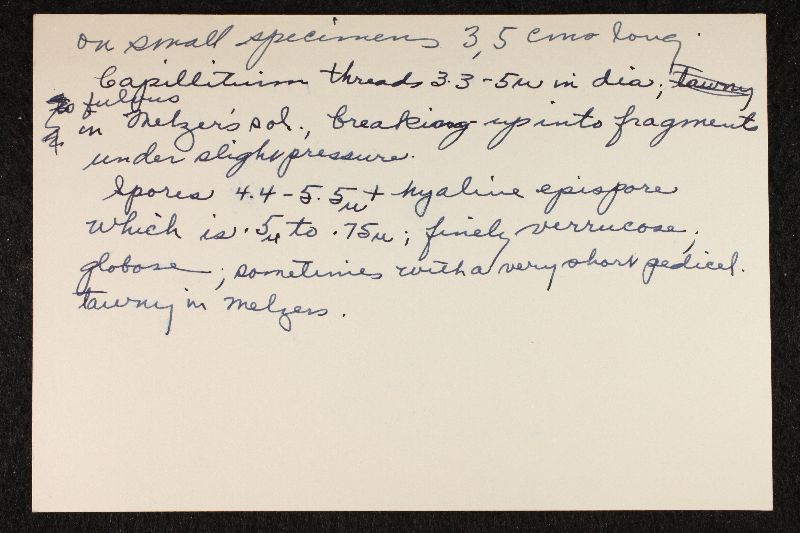 on small specimens 3,5 cms long.
Capillitium threads 3.3-5µ in dia; tawny
to fulvus
in Melzer's sol., breaking up into fragments
under slight pressure.
Spores 4.4-5.5µ + hyaline epispore
which is .5µ to .75µ; finely verrucose,
globose; sometimes with a very short pedicel.
tawny in Melzers.